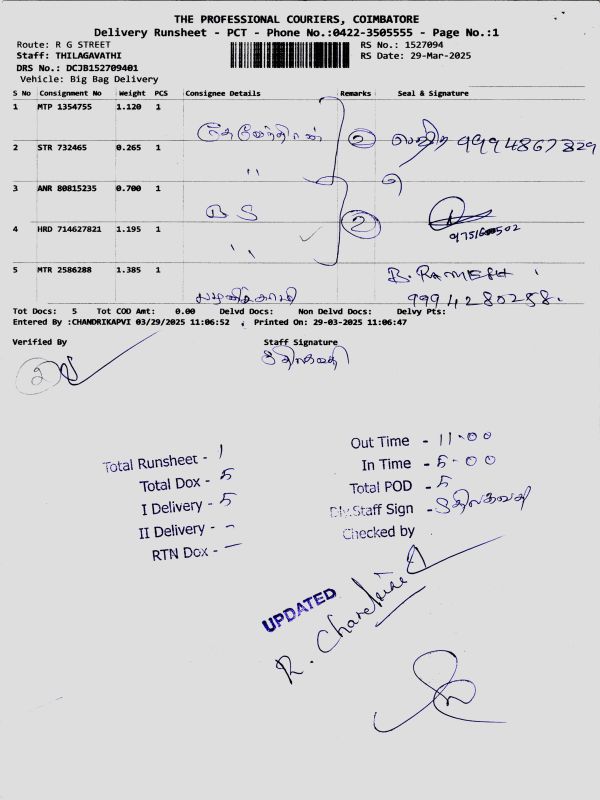 THE PROFESSIONAL COURIERS, COIMBATORE
Delivery Runsheet - PCT - Phone No.:0422-3505555 - Page No.:1
Route: R G STREET RS No.: 1527094
Staff: THILAGAVATHI RS Date: 29-Mar-2025
DRS No.: DCJB152709401
Vehicle: Big Bag Delivery
S No Consignment No Weight PCS Consignee Details Remarks Seal & Signature
1 MTP 1354755 1.120 1
2 9994867829
2 STR 732465 0.265 1
"
3 ANR 80815235 0.700 1
B S 2
4 HRD 714627821 1.195 1
"
5 MTR 2586288 1.385 1 B. RAMESH
9994280258.
Tot Docs: 5 Tot COD Amt: 0.00 Delvd Docs: Non Delvd Docs: Delvy Pts:
Entered By :CHANDRIKAPVI 03/29/2025 11:06:52 . Printed On: 29-03-2025 11:06:47
Verified By Staff Signature
Total Runsheet - 1 Out Time - 11-00
Total Dox - 5 In Time - 5-00
I Delivery - 5 Total POD - 5
II Delivery - - Dly.Staff Sign -
RTN Dox - - Checked by
UPDATED